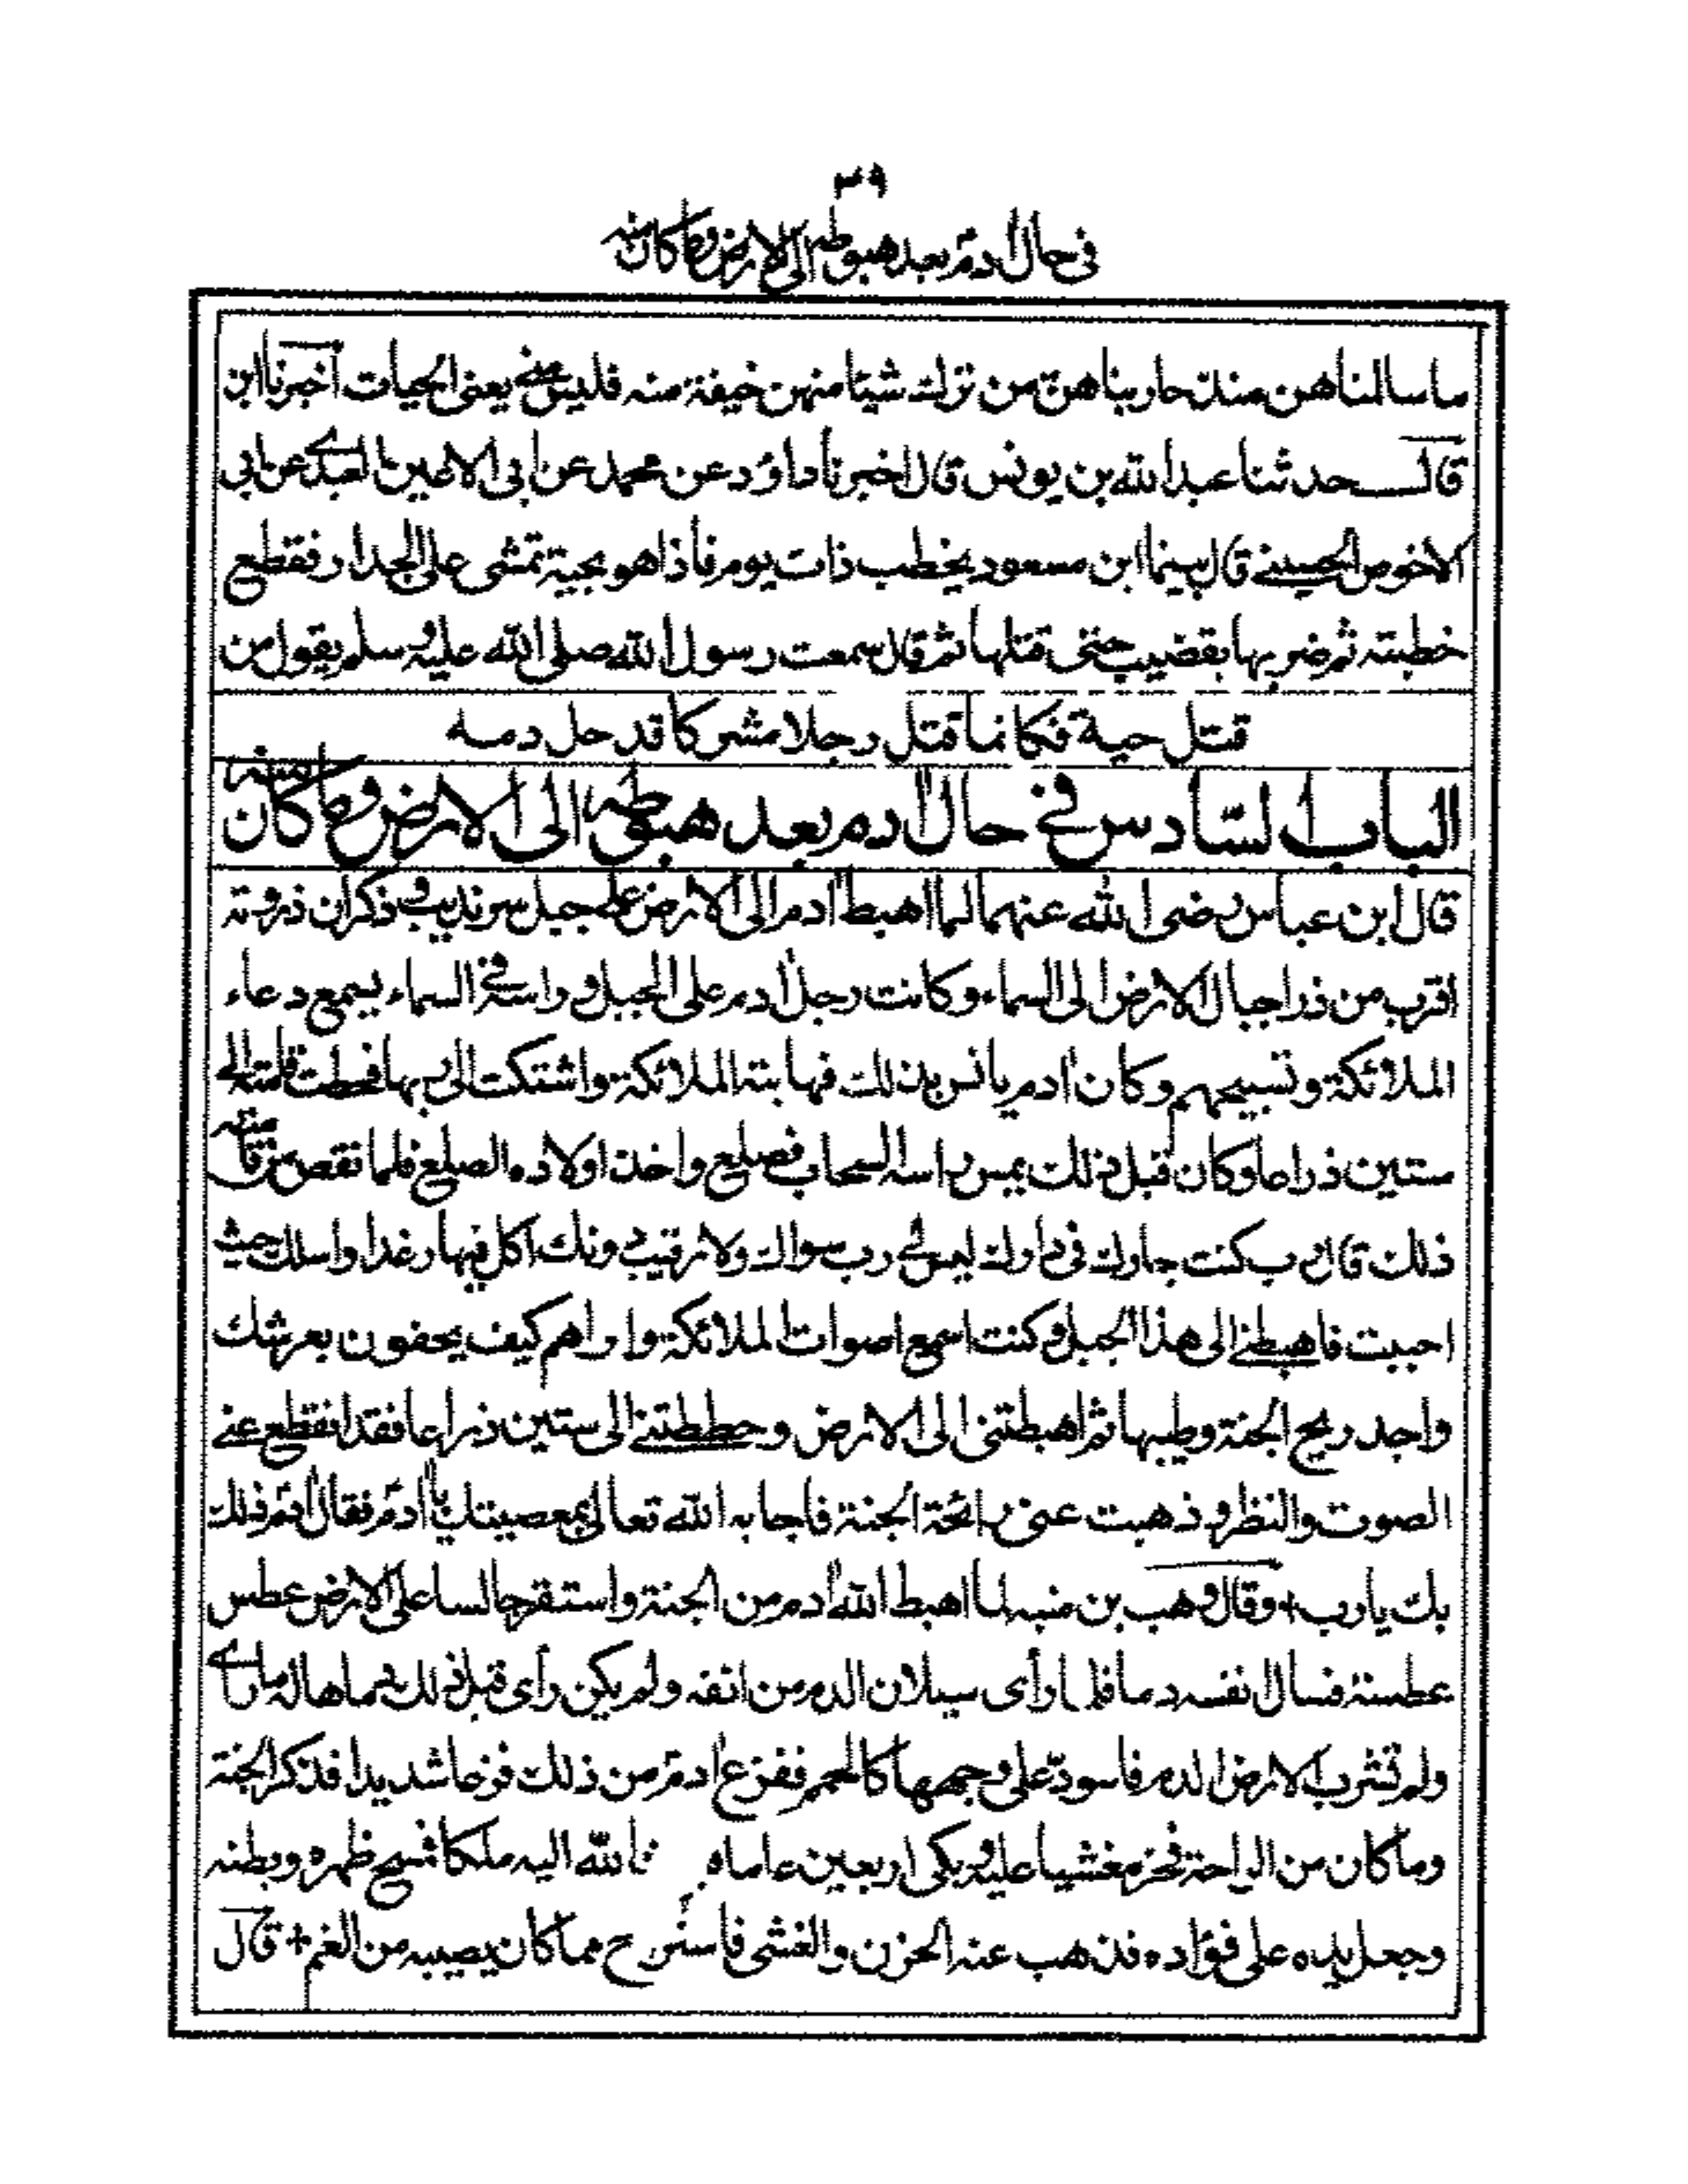 ٣٩
فی حال اٰدمؑ بعد هبوطه الی الارض وما کان منه
ما سالمناهن منذ حاربناهن من ترك شیئا منهن خیفة منه فلیس منی یعنی الحیات اخبرنا ابن
قال حدثنا عبد الله بن یونس قال اخبرنا داؤد عن محمد عن ابی الاعین العبدے عن ابی
الاخوص الحسینے قال بینما ابن مسعود یخطب ذات یوم فاذا هو بحیة تمشی علی الجدار فقطع
خطبته ثم ضربها بقضیب حتی قتلها ثم قال سمعت رسول الله صلی الله علیه وسلم یقول من
قتل حیة فکانما قتل رجلا مشرکا قد حل دمه
الباب السّادس فی حال اٰدم بعد هبوطه الی الارض وما کان منه
قال ابن عباس رضی الله عنهما لما اهبط اٰدم الی الارض علے جبل سرندیب وذکران ذروته
اقرب من ذرا جبال الارض الی السماء وکانت رجل اٰدم علی الجبل وراسه فی السماء یسمع دعاء
الملائکة وتسبیحهم وکان اٰدم یانس بذلك فهابته الملائکة واشتکت الی ربها فحطت قامته الی
ستین ذراعا وکان قبل ذلك یمس راسه السحاب فصلع واخذ اولاده الصلع فلما نقص من قامته
ذلك قال رب کنت جارك فی دارك لیس لی رب سواك ولا رقیب دونك اکل فیها رغدا واسلك حیث
احببت فاهبطنے الی هذا الجبل وکنت اسمع اصوات الملائکة واراهم کیف یحفون بعرشك
واجد ریح الجنة وطیبها ثم اهبطتنی الی الارض وحططتنے الی ستین ذراعا فقد انقطع عنی
الصوت والنظر وذهبت عنی رائحة الجنة فاجابه الله تعالی بمعصیتك یا اٰدمؑ فقال اٰدمؑ فذلك
بك یا رب + وقال وهب بن منبه لما اهبط الله اٰدم من الجنة واستقر جالسا علی الارض عطس
عطسة فسال نفسه دما فلما رأی سیلان الدم من انفه ولم یکن رأی قبل ذلك دما هاله ما رأے
ولم تشرب الارض الدم فاسودّ علی وجهها کالحمم ففزع اٰدمؑ من ذلك فزعا شدیدا فذکر الجنة
وما کان من الراحة فخر مغشیا علیه وبکی اربعین عاما الله الیه ملکا فمسح ظهره وبطنه
وجعل یده علی فؤاده فذهب عنه الحزن والغشی فاستراح مما کان یصیبه من الغم + قال